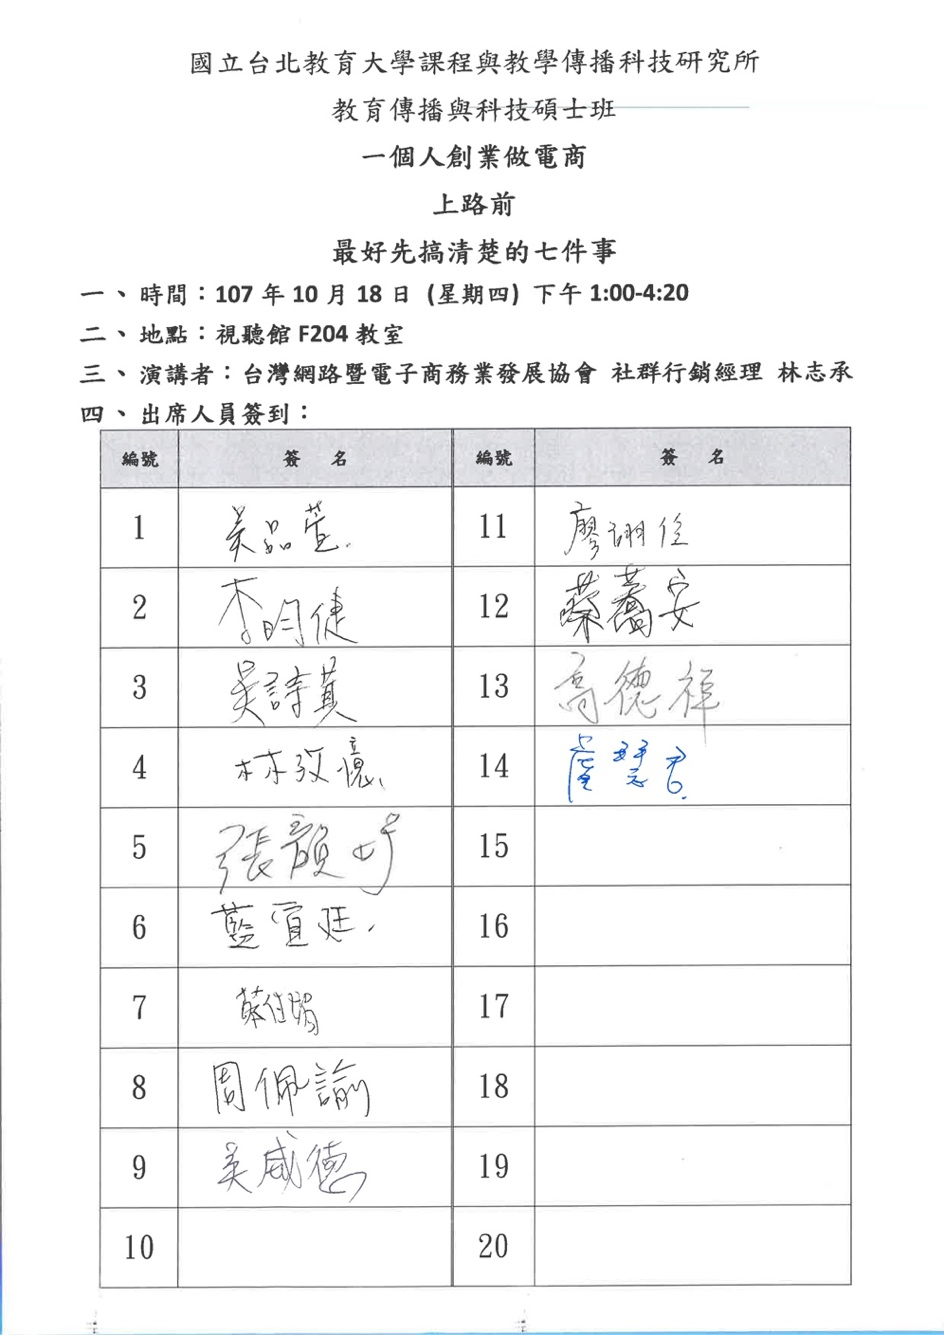 國立台北教育大學課程與教學傳播科技研究所
教育傳播與科技碩士班
一個人創業做電商
上路前
最好先搞清楚的七件事
一、時間：107 年 10 月 18 日 (星期四) 下午 1:00-4:20
二、地點：視聽館 F204 教室
三、演講者：台灣網路暨電子商務業發展協會 社群行銷經理 林志承
四、出席人員簽到：
編號 簽 名 編號 簽 名
1 吳品萱. 11 廖翊
2 李昀倢 12 蔡喬安
3 吳詩 13 高德祥
4 林孜 14
5 張顏 15
6 藍宣廷. 16
7 蔡佳娟 17
8 周佩諭 18
9 吳威德 19
10 20